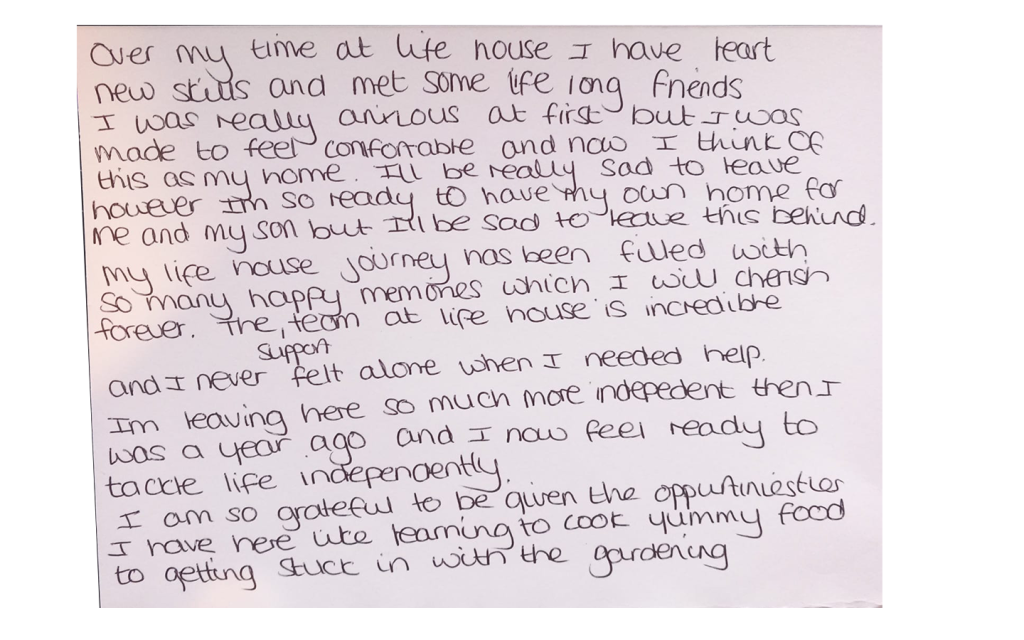 Over my time at life house I have leart
new skills and met some life long friends
I was really anxious at first but I was
made to feel comfortable and now I think of
this as my home. I'll be really sad to leave
however Im so ready to have my own home for
me and my son but I'll be sad to leave this behind.
My life house journey has been filled with
so many happy memories which I will cherish
forever. The, team at life house is incredible
support
and I never felt alone when I needed help.
Im leaving here so much more indepedent then I
was a year ago and I now feel ready to
tackle life independently.
I am so grateful to be given the oppurtiniesties
I have here like learning to cook yummy food
to getting stuck in with the gardening